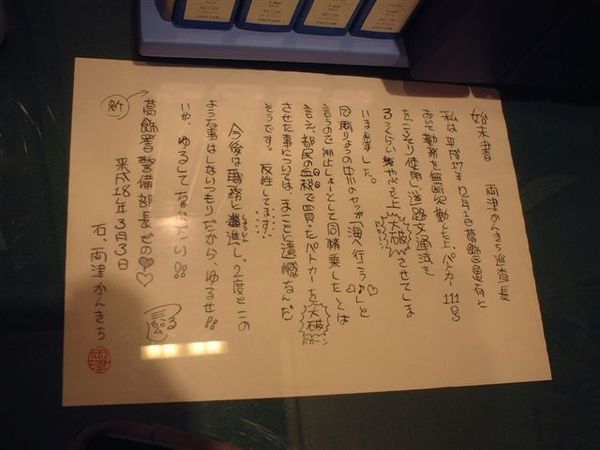 始末書　両津かんきち巡査長
私は平成17年12月1日葛飾区亀有に
おいて勤務を無断欠勤した上、パトカー111号
をこっそり使用し道路交通法を
3つくらいやぶった上 大破 させてしま
いました。
同りょうの中川のヤツが「海へ行こう♪」と
言うので抑止しようとして同乗したとは
言え、都民の血税で買ったパトカーを 大破 ドカーン
させた事については、まことに遺憾なんだ
そうです。反性してます!!
今後は職務に邁進し、2度とこの
ような事はしないつもりだから、ゆるせ!!
いや、ゆるして
新
葛飾署警備部長どの♡♡
平成18年3月3日
右、両津かんきち
両津